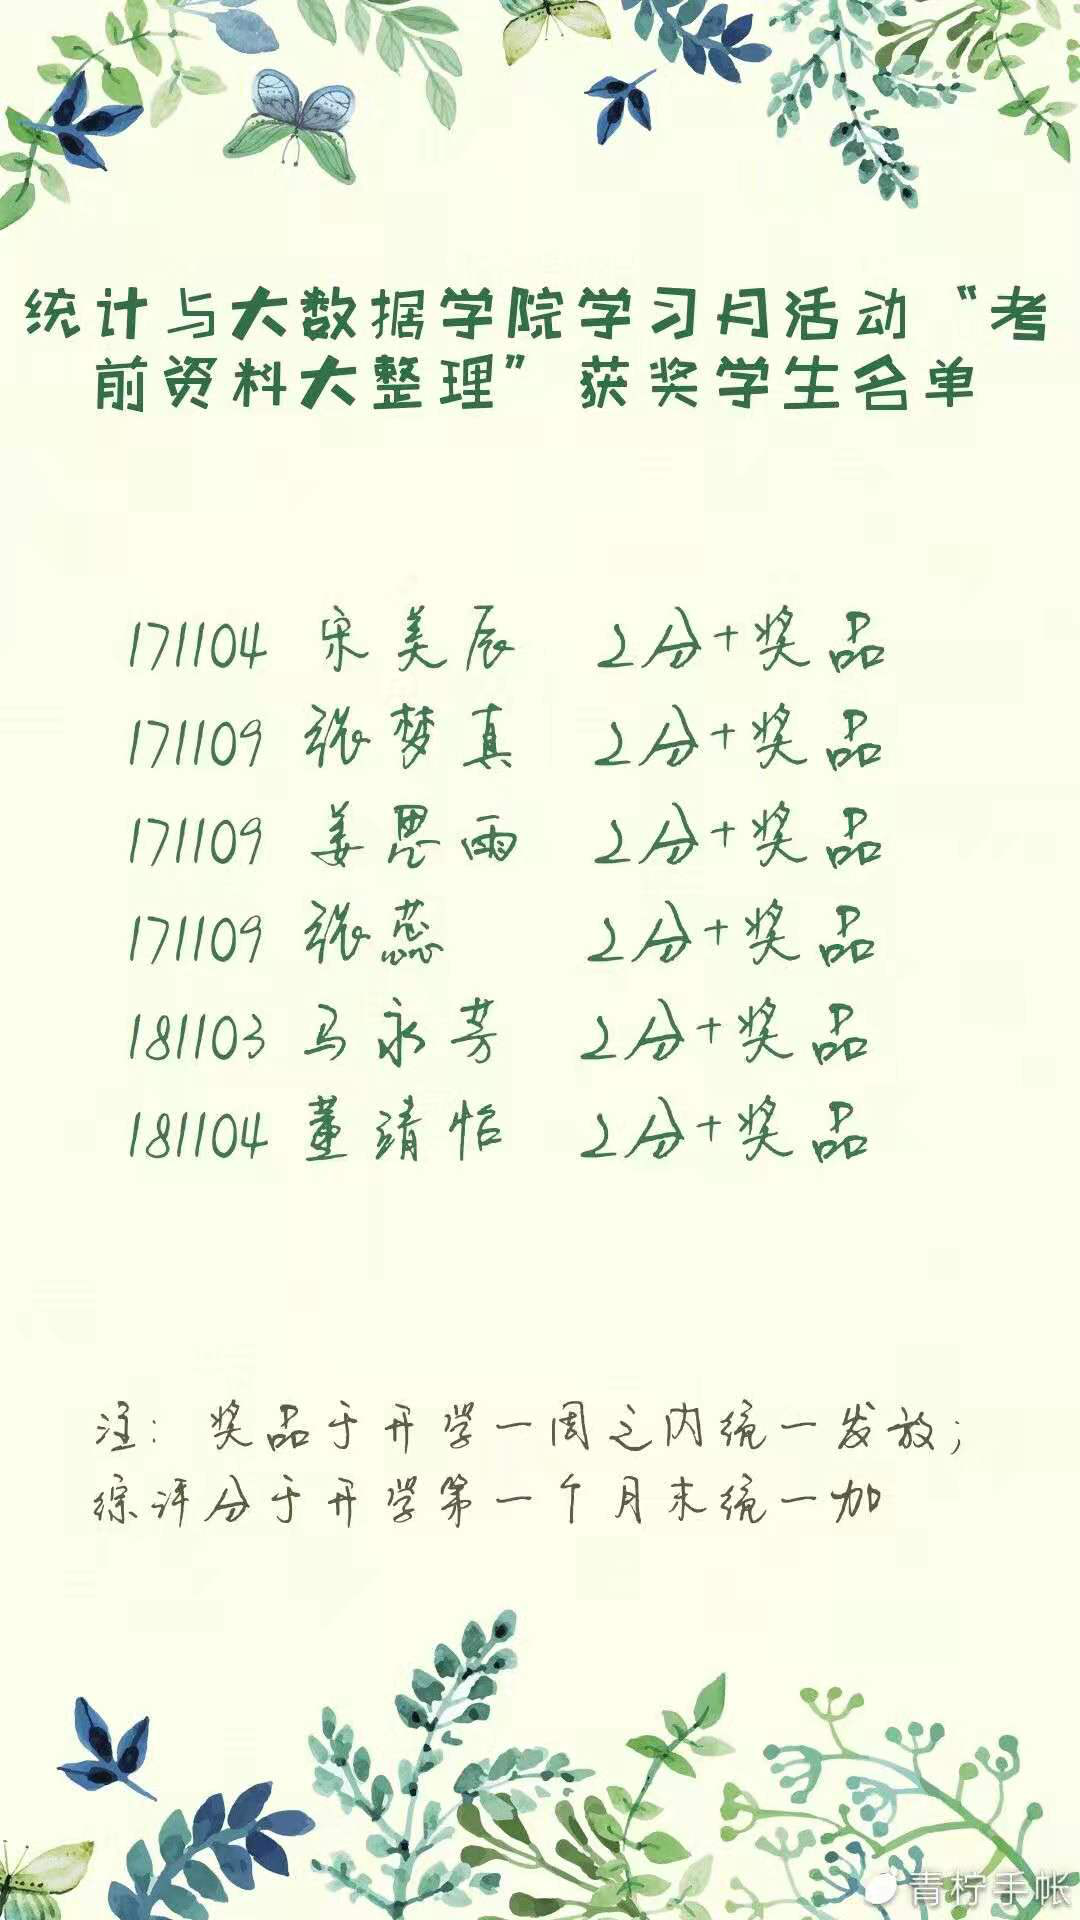 统计与大数据学院学习月活动“考
前资料大整理”获奖学生名单
171104 宋美辰 2分+奖品
171109 张梦真 2分+奖品
171109 姜思雨 2分+奖品
171109 张蕊 2分+奖品
181103 马永芳 2分+奖品
181104 董靖怡 2分+奖品
注：奖品于开学一周之内统一发放；
综评分于开学第一个月末统一加
青柠手帐